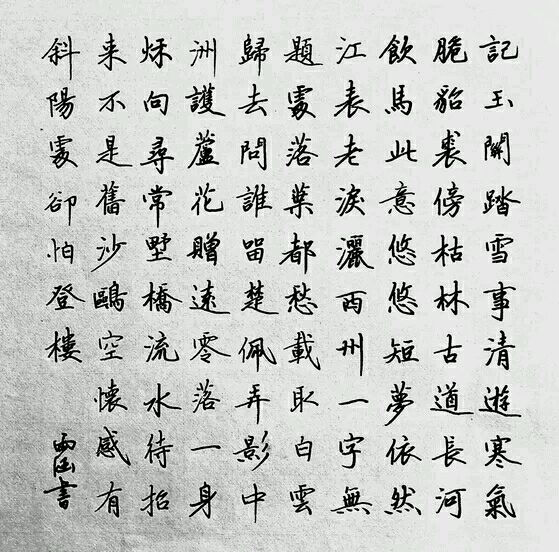 記玉關踏雪事清遊寒氣
脆貂裘傍枯林古道長河
飲馬此意悠悠短夢依然
江表老淚灑西州一字無
題處落葉都愁載取白雲
歸去問誰留楚佩弄影中
洲護蘆花贈遠零落一身
秋向尋常墅橋流水待招
来不是舊沙鷗空懷感有
斜陽處卻怕登樓
書